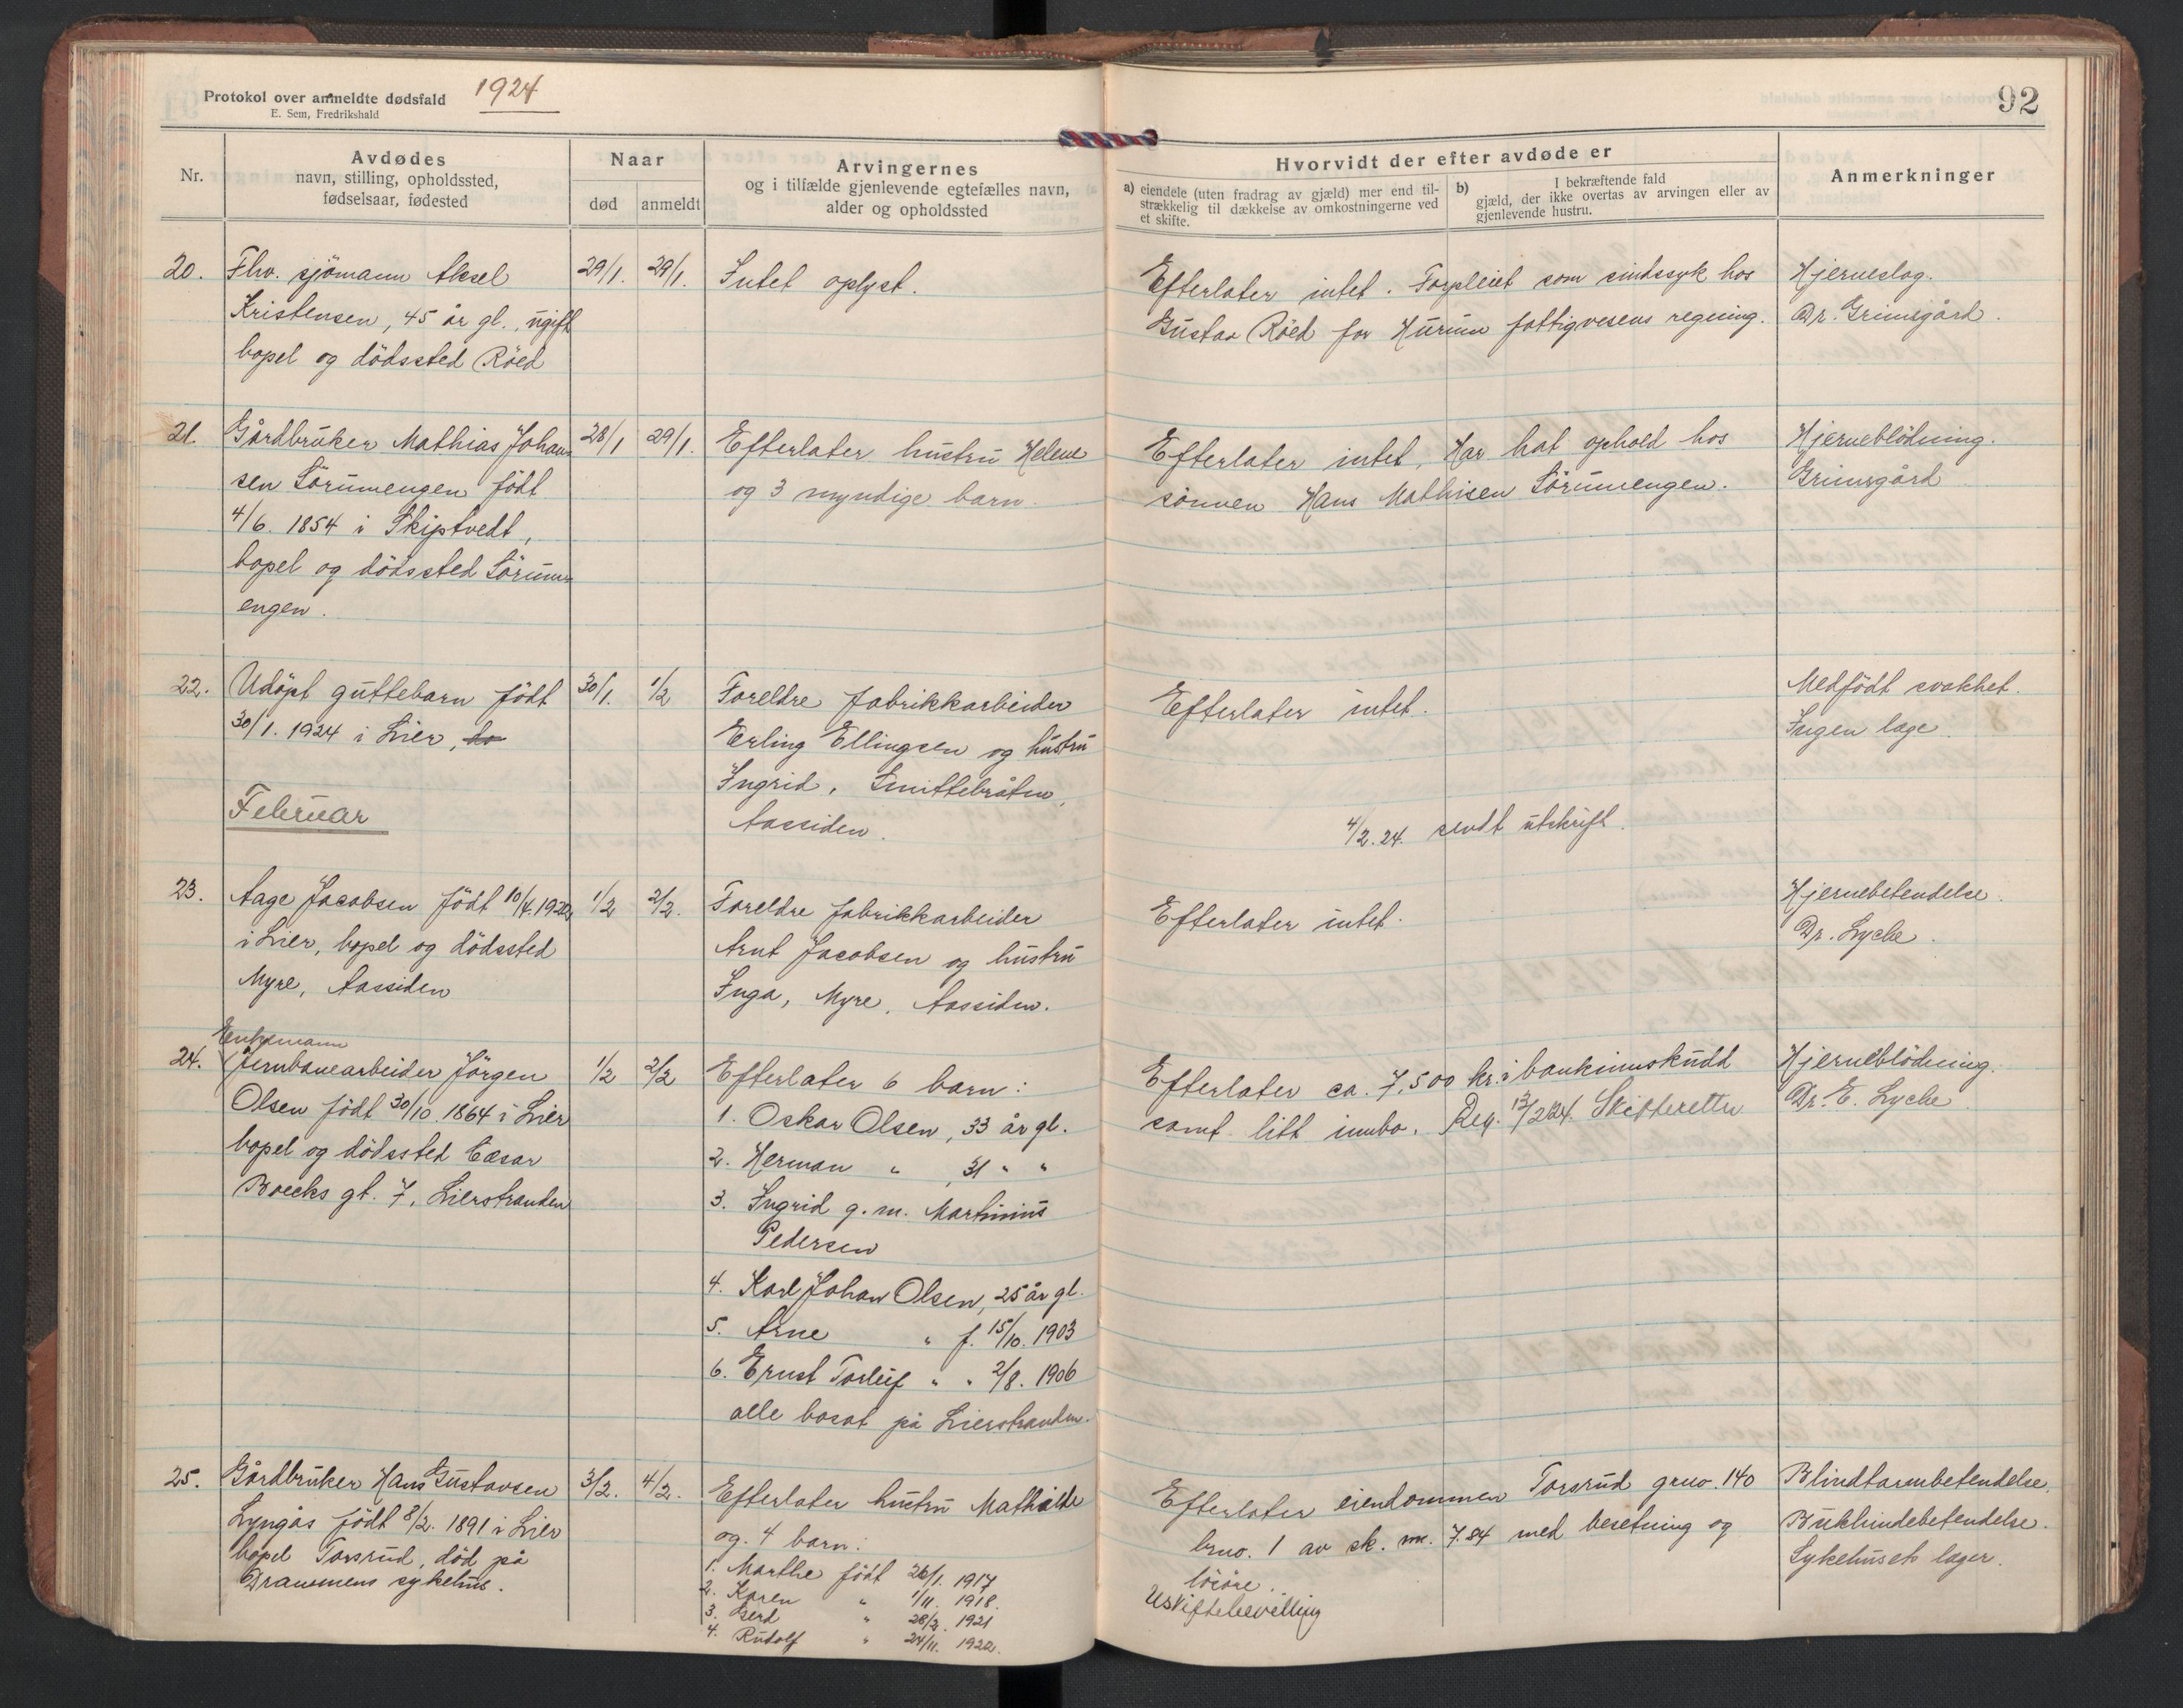 Protokol over anmeldte dødsfald 1924
E. Sem, Fredrikshald
92
Nr.
Avdødes
navn, stilling, opholdssted,
fødselsaar, fødested
Naar
død
anmeldt
Arvingernes
og i tilfælde gjenlevende egtefælles navn,
alder og opholdssted
Hvorvidt der efter avdøde er
a) eiendele (uten fradrag av gjæld) mer end til-
strækkelig til dækkelse av omkostningerne ved
et skifte.
b) I bekræftende fald
gjæld, der ikke overtas av arvingen eller av
gjenlevende hustru.
Anmerkninger
20. Fhv. sjömann Aksel
Kristensen, 45 år gl., ugift
bopel og dödssted Röed
29/1. 29/1.
Intet oplyst.
Efterlater intet. Forpleiet som sindssyk hos
Gustav Röed for Hurum fattigvesens regning.
Hjerneslag.
Dr. Grimsgård.
21. Gårdbruker Mathias Johan-
sen Sörumengen födt
4/6. 1854 i Skiptvedt,
bopel og dödssted Sörum-
engen.
28/1 29/1.
Efterlater hustru Helene
og 3 myndige barn.
Efterlater intet. Har hat ophold hos
sönnen Hans Mathisen Sörumengen.
Hjerneblödning.
Grimsgård
22. Udöpt guttebarn födt
30/1. 1924 i Lier, bo
30/1. 1/2
Foreldre fabrikkarbeider
Erling Ellingsen og hustru
Ingrid, Smittebråten,
Aassiden.
Efterlater intet.
4/2.24. sendt utskrift.
Medfödt svakhet.
Ingen læge.
Februar
23. Aage Jacobsen födt 10/4.1922
i Lier, bopel og dödssted
Myre, Aassiden
1/2 2/2.
Foreldre fabrikkarbeider
Arnt Jacobsen og hustru
Inga, Myre, Aassiden.
Efterlater intet.
Hjernebetendelse.
Dr. Lyche.
Enkemann
24. Jernbanearbeider Jörgen
Olsen födt 30/10. 1864 i Lier
bopel og dödssted Cæsar
Boecks gt. 7, Lierstranden
1/2 2/2
Efterlater 6 barn:
1. Oskar Olsen, 33 år gl.
2. Herman " , 31 " "
3. Ingrid g. m. Martinius
Pedersen
4. Karl Johan Olsen, 25 år gl.
5. Arne " f. 15/10. 1903
6. Ernst Torleif " " 2/8. 1906
alle bosat på Lierstranden.
Efterlater ca. 7,500 kr. i bankinnskudd
samt litt innbo. Reg. 13/2 24. Skifteretten
Hjerneblödning.
Dr. E. Lyche
25. Gårdbruker Hans Gustavsen
Lyngås födt 8/2. 1891 i Lier
bopel Torsrud, död på
Drammens sykehus.
3/2. 4/2.
Efterlater hustru Mathilde
og 4 barn:
1. Marthe födt 26/1. 1917
2. Karen " 1/11. 1918.
3. Gerd " 28/2. 1921
4. Rudolf " 24/11. 1922.
Efterlater eiendommen Torsrud grno. 140
brno. 1 av sk. m. 7.84 med besetning og
lösöre.
Uskiftebevilling
Blindtarmbetendelse.
Bukhindebetendelse.
Sykehusets læger.